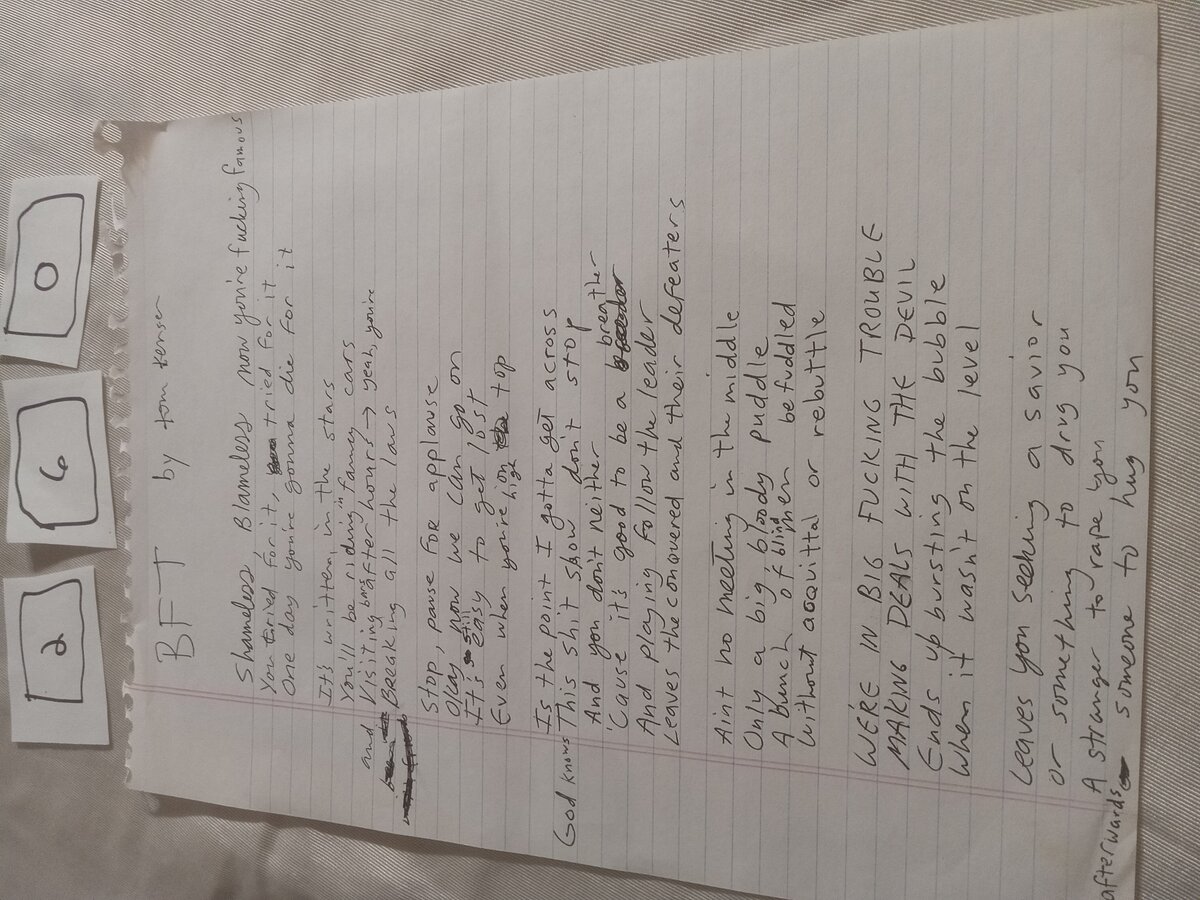 2 6 0
BFT by tom jensen
Shameless, Blameless now you're fucking famous
You tried for it, tried for it
One day you're gonna die for it
It's written, in the stars
You'll be riding in fancy cars
and Visiting bars after hours → yeah, you're
Breaking all the laws
Stop, pause for applause
Okay now we can go on
It's still easy to get lost
Even when you're high on top
Is the point I gotta get across
God knows This shit show don't stop
And you don't neither
'Cause it's good to be a breather
And playing follow the leader
Leaves the conquered and their defeaters
Ain't no meeting in the middle
Only a big, bloody puddle
A bunch of blind men befuddled
Without acquittal or rebuttle
WE'RE IN BIG FUCKING TROUBLE
MAKING DEALS WITH THE DEVIL
Ends up bursting the bubble
When it wasn't on the level
Leaves you seeking a savior
or something to drug you
A stranger to rape you
afterwards someone to hug you